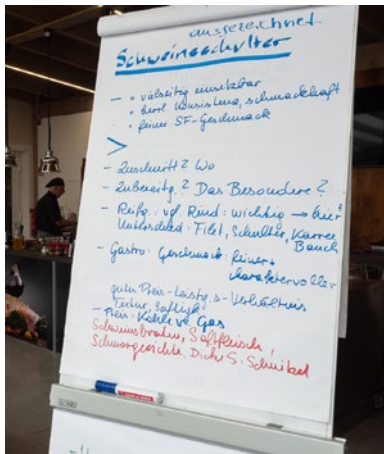 ausgezeichnet
Schweineschulter
– • vielseitig einsetzbar
• herrl. Konsistenz, schmackhaft
• feiner SF-Geschmack
>
– Zuschnitt? Wo
– Zubereitg.? Das Besondere?
– Reifg.: vgl. Rind: wichtig → hier?
Unterschied: Filet, Schulter, Karree
Bauch
– Gastro: Geschmack: feiner +
charaktervoller
gutes Preis-Leistg.s-Verhältnis
Textur, Saftigk.
– Preis: Kohle vs Gas
Schweinsbraten, Saftfleisch,
Schmorgerichte, Dicke S: Schnitzel